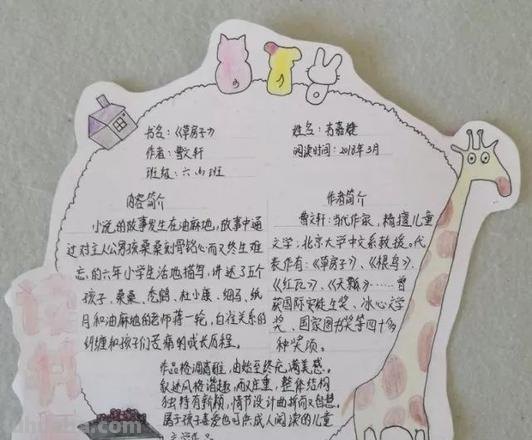 书名:《草房子》
作者:曹文轩
班级:六、(4)班
姓名:
阅读时间:2018年3月
内容简介
小说的故事发生在油麻地,故事中通
过对主人公男孩桑桑刻骨铭心而又终生难
忘的六年小学生活地描写,讲述了五个
孩子,桑桑、秃鹤、杜小康、细马、纸
月和油麻地的老师蒋一轮,白雀关系的
纠缠和孩子们苦痛的成长历程。
作者简介
曹文轩:当代作家,精擅儿童
文学,北京大学中文系教授。代
表作有:《草房子》、《根鸟》、
《红瓦》、《天瓢》……曾
获国际安徒生奖、冰心文学
奖、国家图书奖等四十多
种奖项。
作品格调高雅,由始至终充满美感。
叙述风格谐趣而又庄重,整体结构
独特而新颖,情节设计曲折而又智慧。
属于孩子喜爱也可供成人阅读的儿童
文学作